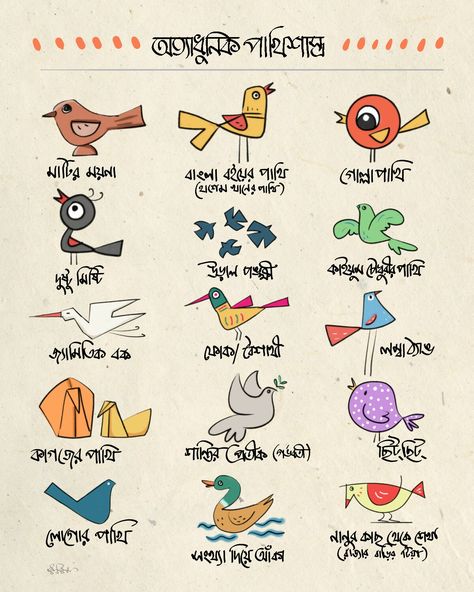 অত্যাধুনিক পাখিশাস্ত্র
মাটির ময়না
বাংলা বইয়ের পাখি
(হাশেম খানের পাখি)
গোল্লাপাখি
দুষ্টু মিষ্টি
উড়াল পঙ্ক্ষী
কাইয়ুম চৌধুরীর পাখি
জ্যামিতিক বক
ফোক/বৈশাখী
লম্বা ঠ্যাঙ
কাগজের পাখি
শান্তির প্রতীক (গর্ভবতী)
ছিট্ ছিট্
লোগোর পাখি
সংখ্যা দিয়ে আঁকা
নানুর কাছ থেকে শেখা
(রাজার বাড়ির